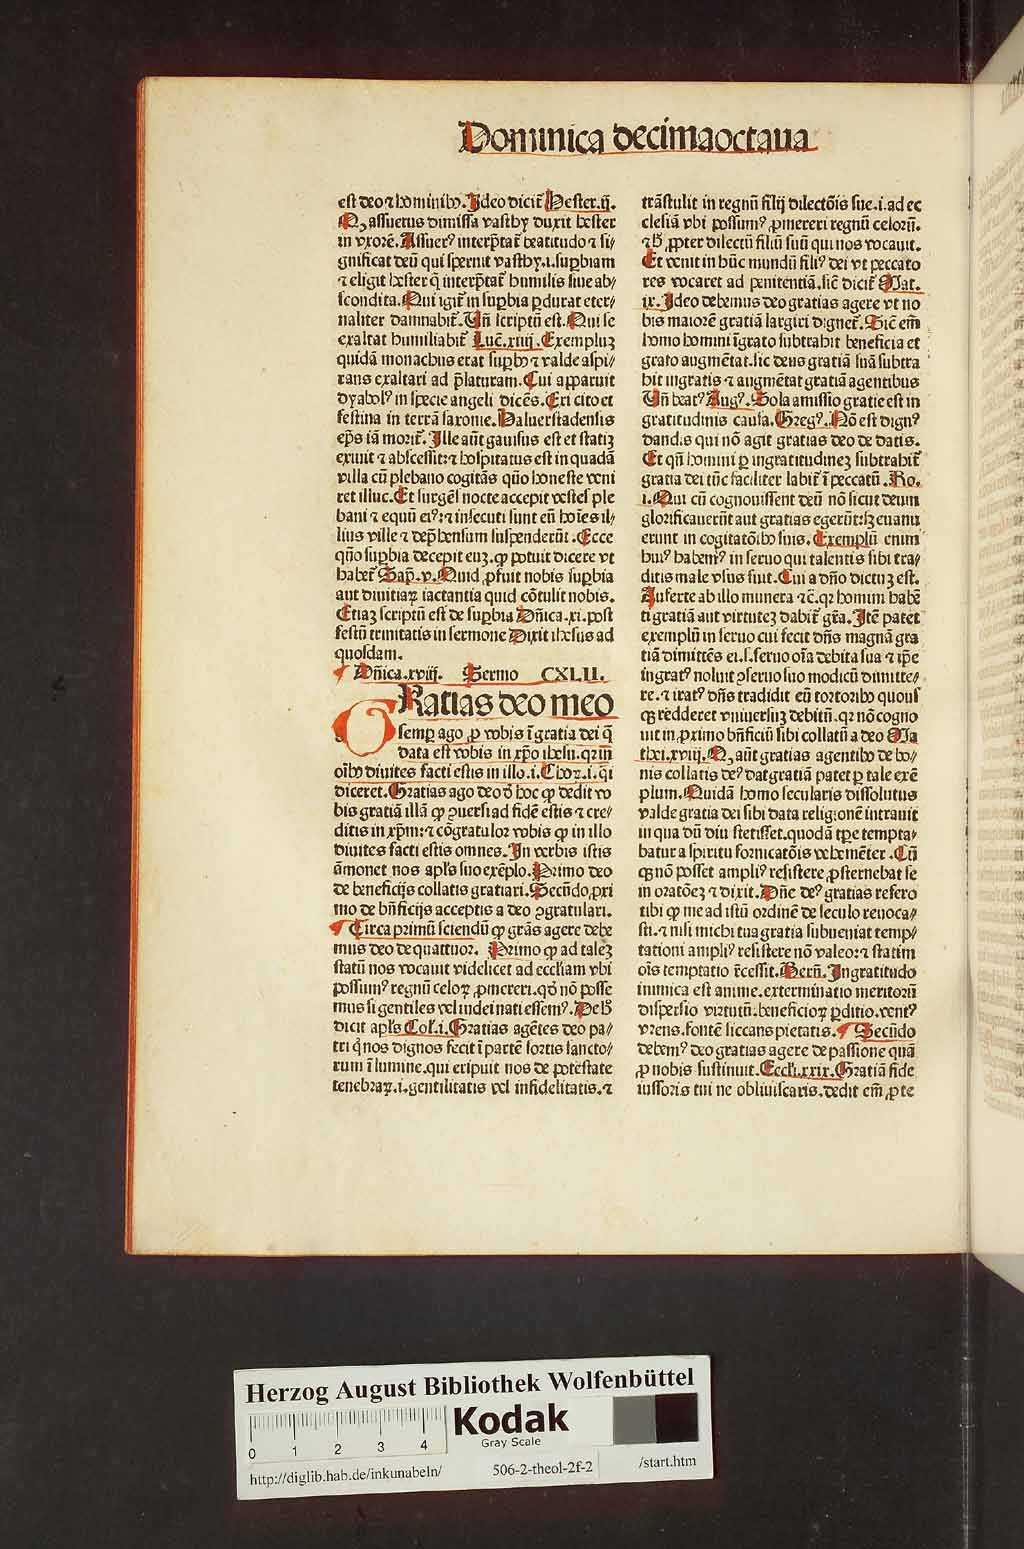 Dominica decimaoctaua
est deo ⁊ hominibꝰ. Ideo dicit᷑ Hester .ij.
Ꝙ assuerus dimissa vasthy duxit hester
in vxorē. Assuerꝰ interp̄tat᷑ beatitudo ⁊ si⸗
gnificat deū qui spernit vasthy .i. suꝑbiam
⁊ eligit hester q̄ interp̄tat᷑ humilis siue ab⸗
scondita. Qui igit᷑ in suꝑbia ꝑdurat eter⸗
naliter damnabit᷑. Vn̄ scriptū est. Qui se
exaltat humiliabit᷑ Luc̄. xiiij. Exempluꝫ
quidā monachus erat suꝑbꝰ ⁊ valde aspi⸗
rans exaltari ad p̄laturam. Cui apparuit
dyabolꝰ in specie angeli dicēs. Exi cito et
festina in terrā saxonie. Haluerstadensis
ep̄s iā morit᷑. Ille aūt gauisus est et statiꝫ
exiuit ⁊ abscessit: ⁊ hospitatus est in quadā
villa cū plebano cogitās quō honeste veni
ret illuc. Et surgēs nocte accepit vestes ple
bani ⁊ equū eiꝰ: ⁊ insecuti sunt eū hoīes il⸗
lius ville ⁊ dep̄hensum suspenderūt. Ecce
quō suꝑbia decepit euꝫ. ꝙ potuit dicere vt
habet᷑ Sap̄. v. Quid ꝓfuit nobis suꝑbia
aut diuitiaꝝ iactantia quid cōtulit nobis.
Etiaꝫ scriptū est de suꝑbia Dn̄ica. xi. post
festū trinitatis in sermone Dixit ihesus ad
quosdam.
¶ Dn̄ica. xviij. Sermo CXLII.
GRatias deo meo
semꝑ ago ꝓ vobis ī gratia dei q̄
data est vobis in xp̄o ihesu. qꝛ in
oībꝰ diuites facti estis in illo. i. Choꝝ. i. q̄si
diceret. Gratias ago deo ō hoc ꝙ dedit vo
bis gratiā illā ꝙ ꝯuersi ad fidē estis ⁊ cre⸗
ditis in xp̄m: ⁊ cōgratulor vobis ꝙ in illo
diuites facti estis omnes. In verbis istis
āmonet nos apl̄s suo exēplo. Primo deo
de beneficijs collatis gratiari. Secūdo ꝓxi
mo de bn̄ficijs acceptis a deo ꝯgratulari.
¶ Circa primū sciendū ꝙ grās agere debe
mus deo de quattuor. Primo ꝙ ad taleꝫ
statū nos vocauit videlicet ad eccl̄iam vbi
possumꝰ regnū celoꝝ ꝓmereri. qd̄ nō posse
mus si gentiles vel iudei nati essemꝰ. De hꝭ
dicit apl̄s Col̄. i. Gratias agētes deo pa⸗
tri q̇ nos dignos fecit ī partē sortis sancto⸗
rum ī lumine. qui eripuit nos de potestate
tenebraꝝ .i. gentilitatis vel infidelitatis. ⁊
trāstulit in regnū filij dilectōis sue .i. ad ec
clesiā vbi possumꝰ ꝓmereri regnū celorū.
⁊ hꝭ ꝓpter dilectū filiū suū qui nos vocauit.
Et venit in hūc mundū filiꝰ dei vt peccato
res vocaret ad penitentiā. sic̄ dicit᷑ Mat.
ix. Ideo debemus deo gratias agere vt no
bis maiorē gratiā largiri dignet᷑. Sic̄ em̄
homo homini īgrato subtrahit beneficia et
grato augmētat. sic deus gratiā suā subtra
hit ingratis ⁊ augmētat gratiā agentibus
Vn̄ beatꝰ Augꝰ. Sola amissio gratie est in
gratitudinis causa. Gregꝰ. Nō est dignꝰ
dandis qui nō agit gratias deo de datis.
Et qn̄ homini ꝑ ingratitudineꝫ subtrahit᷑
gratia dei tūc faciliter labit᷑ ī peccatū. Ro.
i. Qui cū cognouissent deū nō sicut deum
glorificauerūt aut gratias egerūt: sꝫ euanu
erunt in cogitatōibꝰ suis. Exemplū enim
huiꝰ habemꝰ in seruo qui talentis sibi tra⸗
ditis male vsus fuit. Cui a dn̄o dictuꝫ est.
Auferte ab illo munera ⁊c̄. qꝛ homini habē
ti gratiā aut virtuteꝫ dabit᷑ gr̄a. Itē patet
exemplū in seruo cui fecit dn̄s magnā gra
tiā dimittēs ei. s. seruo oīa debita sua ⁊ ip̄e
ingratꝰ noluit ꝯseruo suo modicū dimitte⸗
re. ⁊ iratꝰ dn̄s tradidit eū tortoribꝰ quous
qꝫ redderet vniuersuꝫ debitū. qꝛ nō cogno
uit in ꝓximo bn̄ficiū sibi collatū a deo Ma
thei. xviij. Ꝙ aūt gratias agentibꝰ de bo⸗
nis collatis deꝰ dat gratiā patet ꝑ tale exē
plum. Quidā homo secularis dissolutus
valde gratia dei sibi data religionē intrauit
in qua dū diu stetisset. quodā tp̄e tempta⸗
batur a spiritu fornicatōis vehemēter. Cū
qꝫ nō posset ampliꝰ resistere ꝓsternebat se
in oratōeꝫ ⁊ dixit. Dn̄e deꝰ gratias refero
tibi ꝙ me ad istū ordinē de seculo reuoca⸗
sti. ⁊ nisi michi tua gratia subueniat temp⸗
tationi ampliꝰ resistere nō valeo: ⁊ statim
oīs temptatio r̄cessit. Bern̄. Ingratitudo
inimica est anime. exterminatio meritorū
dispersio virtutū. beneficioꝝ ꝑditio. ventꝰ
vrens. fontē siccans pietatis. ¶ Secūdo
debemꝰ deo gratias agere de passione quā
ꝓ nobis sustinuit. Eccl̄i. xxix. Gratiā fide
iussoris tui ne obliuiscaris. dedit em̄ ꝓ te
Herzog August Bibliothek Wolfenbüttel
0 1 2 3 4
Kodak
Gray Scale
http://diglib.hab.de/inkunabeln/ 506-2-theol-2f-2 /start.htm